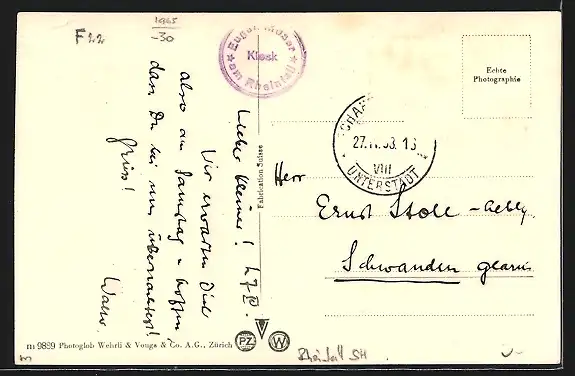 F22
1965
-30
Eugen Moser
Kiosk
am Rheinfall
Lieber kleiner!
Wir erwarten Dich
also am Samstag u hoffen
dass Du bei uns übernachtest!
Gruss!
Walter.
Fabrication Suisse
Echte
Photographie
SCHAFF
27.IV.53.
VIII
UNTERSTADT
Herr
Ernst Stoll - Aebly
Schwanden Glarus
m 9889 Photoglob Wehrli & Vouga & Co. A.G., Zürich
PZ
W
Rheinfall SH